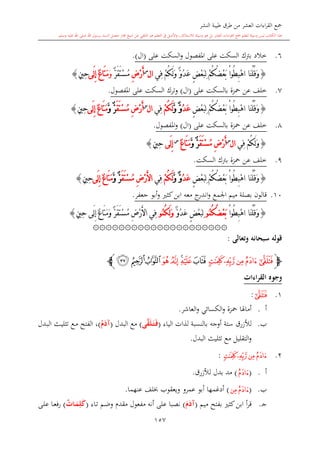 جمع القراءات العشر من طرق طيبة النشر
٦. خلاد بترك السكت على المفصول والسكت على (ال).
﴿ وَقُلْنَا اهْبِطُوا۟ بَعْضُكُمْ لِبَعْضٍ عَدُوٌّ وَلَكُمْ فِي الْأَرْضِ مُسْتَقَرٌّ وَمَتَاعٌ إِلَى حِينٍ ﴾
٧. خلف عن حمزة بالسكت على (ال) وترك السكت على المفصول.
﴿ وَقُلْنَا اهْبِطُوا۟ بَعْضُكُمْ لِبَعْضٍ عَدُوٌّ وَلَكُمْ فِي الْأَرْضِ مُسْتَقَرٌّ وَمَتَاعٌ إِلَى حِينٍ ﴾
٨. خلف عن حمزة بالسكت على (ال) والمفصول.
﴿ وَلَكُمْ فِي الْأَرْضِ مُسْتَقَرٌّ وَمَتَاعٌ إِلَى حِينٍ ﴾
٩. خلف عن حمزة بترك السكت.
﴿ وَقُلْنَا اهْبِطُوا۟ بَعْضُكُمْ لِبَعْضٍ عَدُوٌّ وَلَكُمْ فِي الْأَرْضِ مُسْتَقَرٌّ وَمَتَاعٌ إِلَى حِينٍ ﴾
١٠. قالون بصلة ميم الجمع واندرج معه ابن كثير وأبو جعفر.
﴿ وَقُلْنَا اهْبِطُوا۟ بَعْضُكُمُو لِبَعْضٍ عَدُوٌّ وَلَكُمُو فِي الْأَرْضِ مُسْتَقَرٌّ وَمَتَاعٌ إِلَى حِينٍ ﴾
قوله سبحانه وتعالى :
﴿ فَتَلَقَّىٰٓ ءَادَمُ مِن رَّبِّهِۦ كَلِمَٰتٍ فَتَابَ عَلَيْهِ إِنَّهُۥ هُوَ ٱلتَّوَّابُ ٱلرَّحِيمُ ﴿٣٧﴾ ﴾
وجوه القراءات
١. فَتَلَقَّىٰٓ :
أ . أمالها حمزة والكسائي والعاشر.
ب. للأزرق ستة أوجه بالنسبة لذات الياء (فَتَلَقَّىٰٓ) مع البدل (ءَادَمُ)، الفتح مع تثليث البدل
والتقليل مع تثليث البدل.
٢. ءَادَمُ مِن رَّبِّهِۦ كَلِمَٰتٍ :
أ . (ءَادَمُ) مد بدل للأزرق.
ب. (ءَادَمُ مِن) أدغمها أبو عمرو ويعقوب بخلف عنهما.
جـ. قرأ ابن كثير بفتح ميم (ءَادَمَ) نصبا على أنه مفعول مقدم وضم تاء (كَلِمَاتٌ) رفعا على
١٥٧